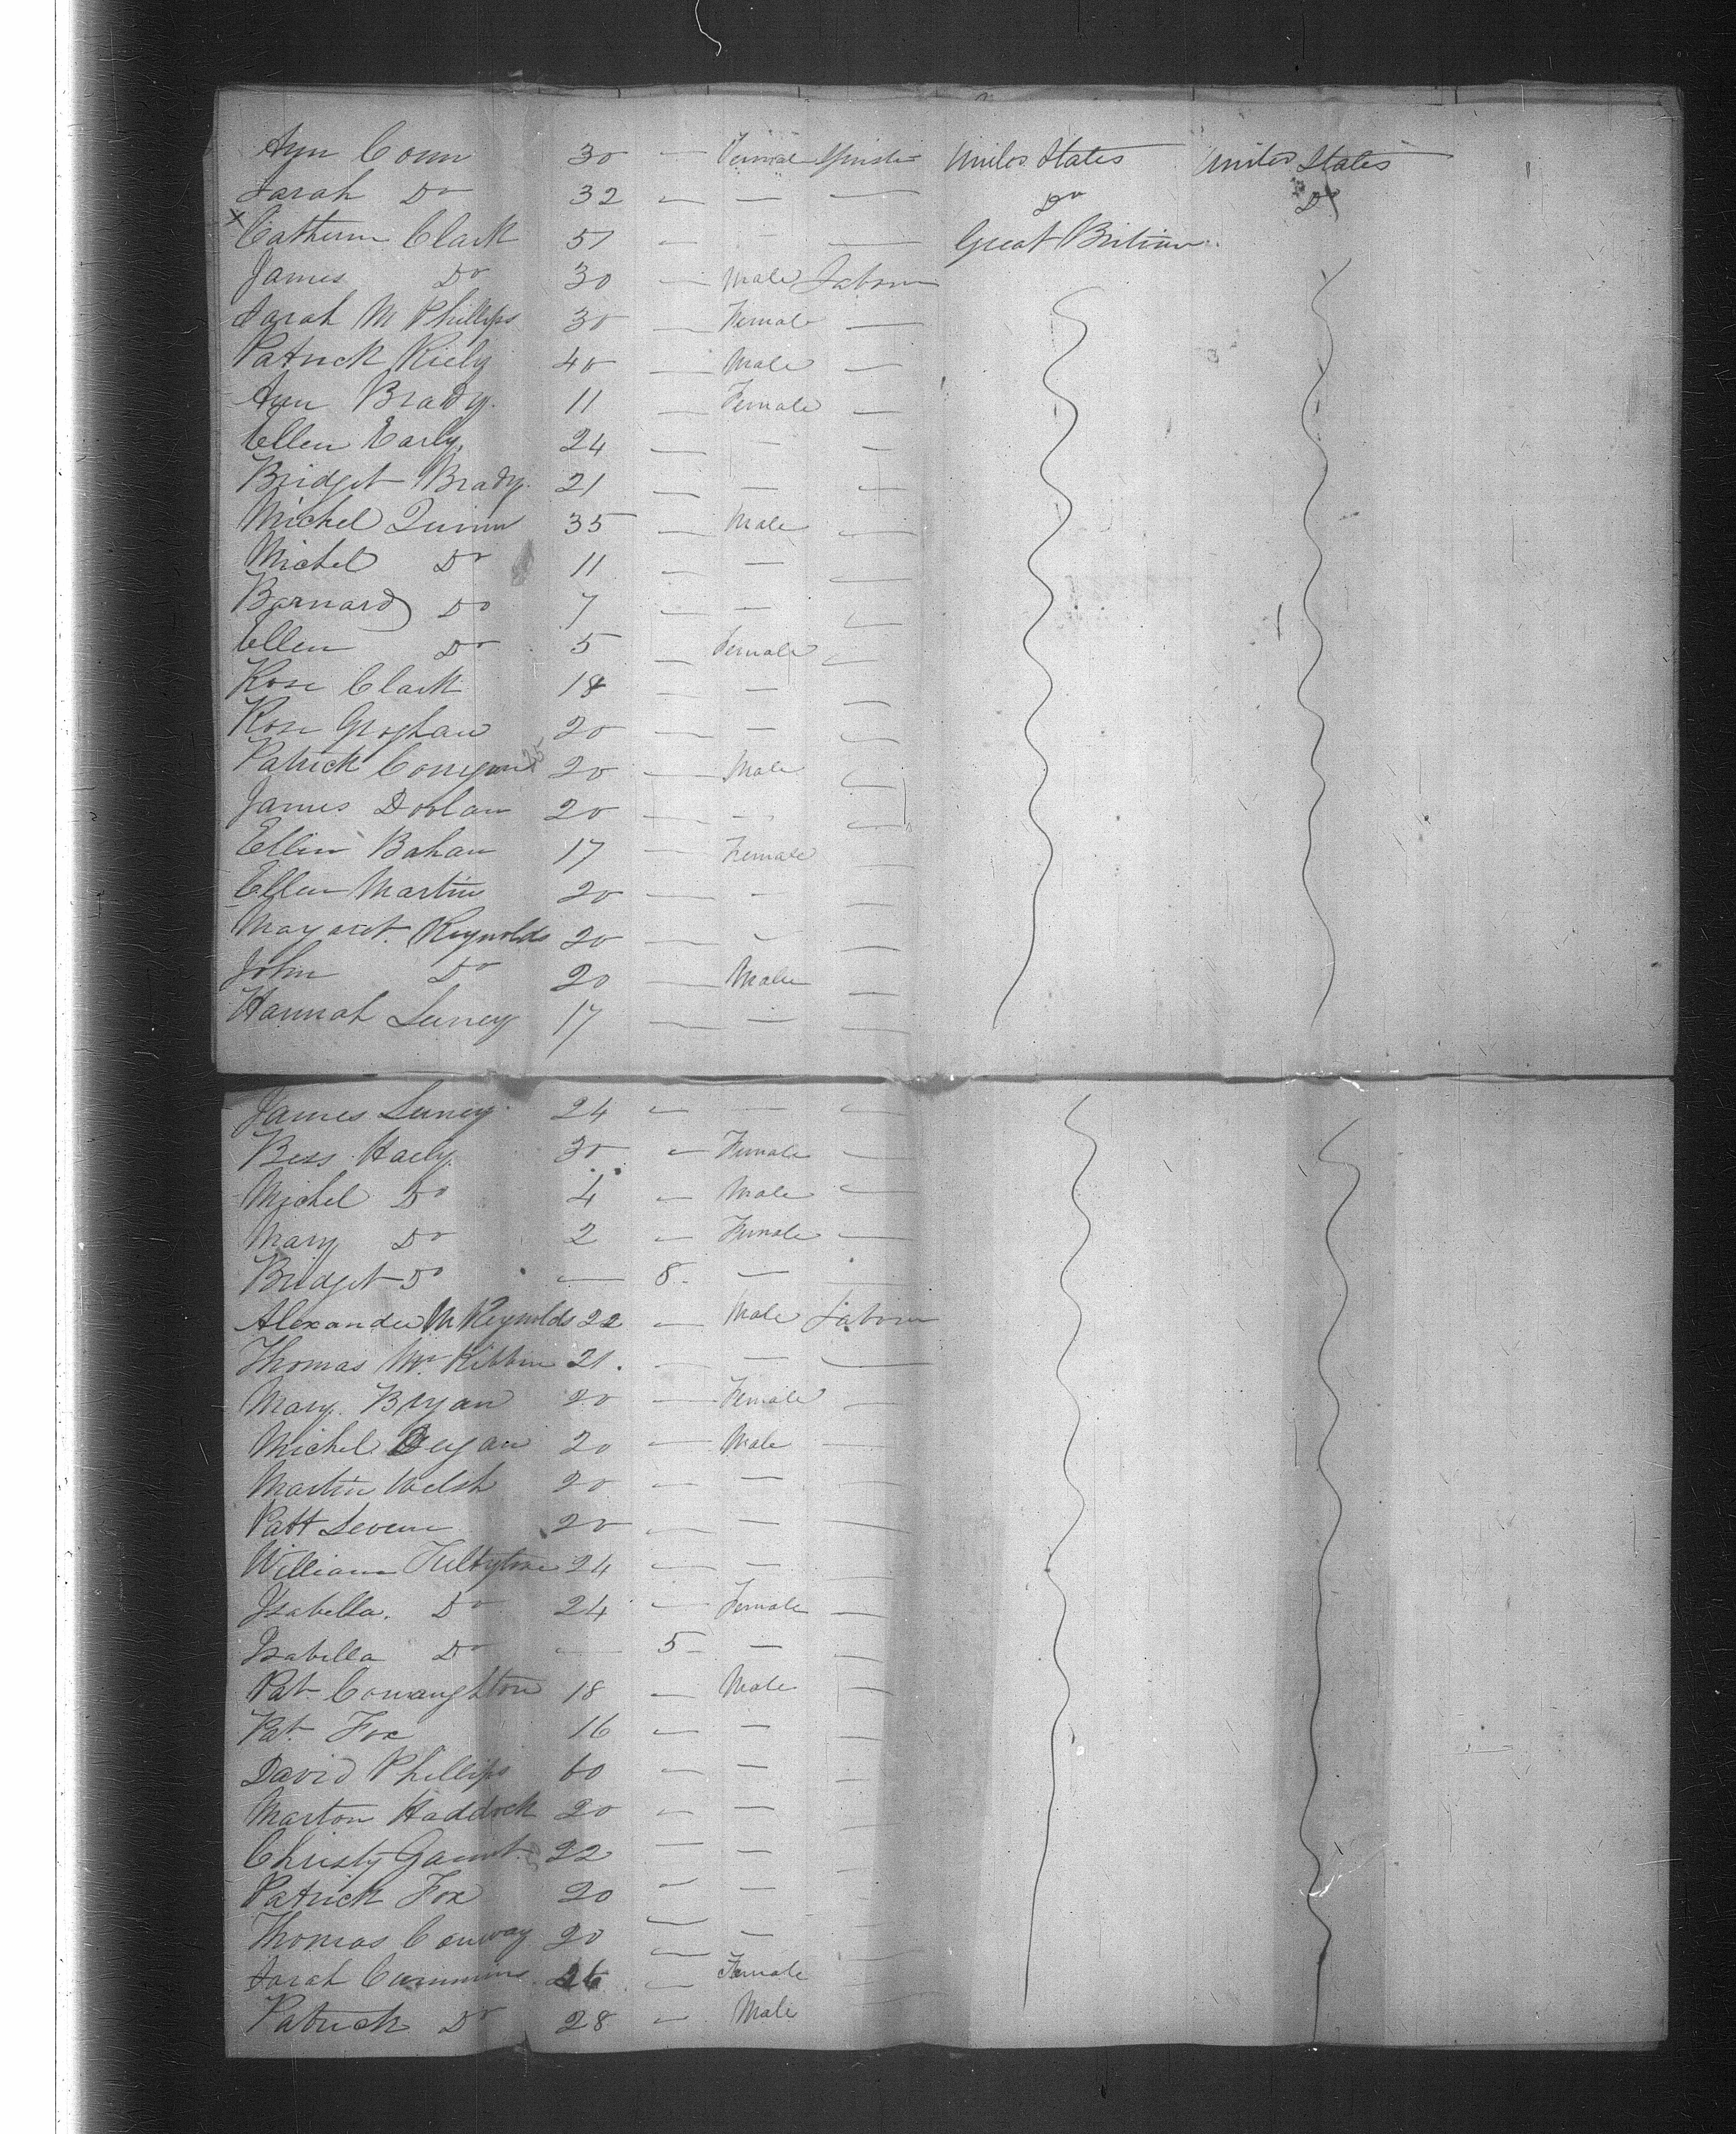 Ann Conn 30 — Female Spinster United States United States
Sarah Do 32 — — — Do Do
x Catherin Clark 51 — — — Great Britian
James Do 30 — Male Labour
Sarah Mc Phillips 30 — Female —
Patrick Riely 40 — Male —
Ann Brady 11 — Female —
Ellen Early 24 — — —
Bridget Brady 21 — — —
Michel Quinn 35 — Male —
Michel Do 11 — — —
Barnard Do 7 — — —
Ellen Do 5 — Female —
Rose Clark 18 — — —
Rose Groghan 20 — — —
Patrick Corrigan 20 — Male —
James Doolan 20 — — —
Ellen Bahan 17 — Female —
Ellen Martin 20 — — —
Margaret Reynolds 20 — — —
John Do 20 — Male —
Hannah Luney 17 — — —
James Luney 24 — — —
Bess Haely 30 — Female —
Michel Do 4 — Male —
Mary Do 2 — Female —
Bridget Do — 8 — —
Alexander Mc Reynolds 22 — Male Labour
Thomas Mc Kibbin 21 — — —
Mary Bryan 20 — Female —
Michel 20 — Male —
Martin Welsh 20 — — —
Patt 20 — — —
William 24 — — —
Isabella Do 24 — Female —
Isabella Do — 5 — —
Pat Conaughton 18 — Male —
Pat Fox 16 — — —
David Phillips 60 — — —
Marton Haddock 20 — — —
Christy 22 — — —
Patrick Fox 20 — —
Thomas Conway 20 — —
Sarah Cummins 26 — Female
Patrick Do 28 — Male